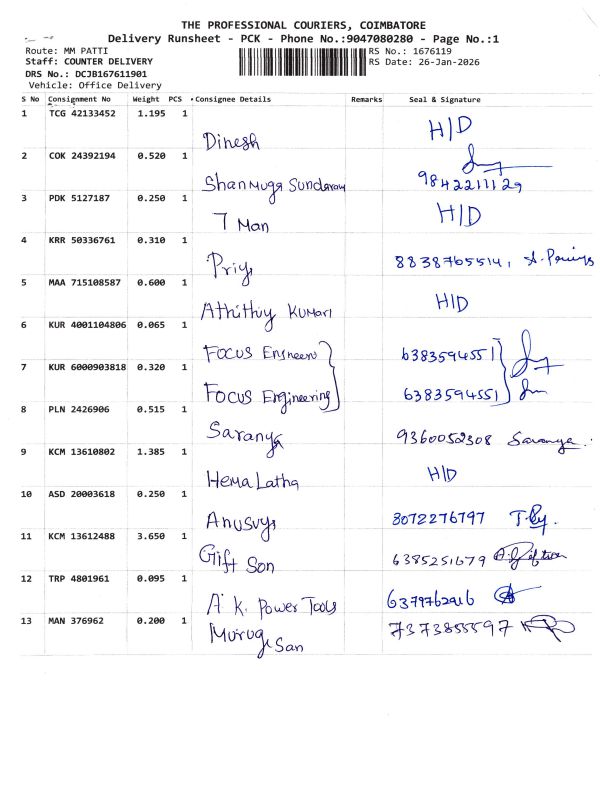 THE PROFESSIONAL COURIERS, COIMBATORE
Delivery Runsheet - PCK - Phone No.:9047080280 - Page No.:1
Route: MM PATTI RS No.: 1676119
Staff: COUNTER DELIVERY RS Date: 26-Jan-2026
DRS No.: DCJB167611901
Vehicle: Office Delivery
S No Consignment No Weight PCS Consignee Details Remarks Seal & Signature
1 TCG 42133452 1.195 1
Dinesh H/D
2 COK 24392194 0.520 1
Shanmuga Sundaram 9842211129
3 PDK 5127187 0.250 1
7 Man H/D
4 KRR 50336761 0.310 1
Priya 8838765514,
5 MAA 715108587 0.600 1
Kumari H/D
6 KUR 4001104806 0.065 1
Focus 6383594551
7 KUR 6000903818 0.320 1
Focus Engineering 6383594551
8 PLN 2426906 0.515 1
Saranya 9360052308 Saranya
9 KCM 13610802 1.385 1
Hema Latha H/D
10 ASD 20003618 0.250 1
Anusuya 8072276797
11 KCM 13612488 3.650 1
Gift Son 6385251679
12 TRP 4801961 0.095 1
A.K. Power Tools 6379762916
13 MAN 376962 0.200 1
Muruge san 7373855597